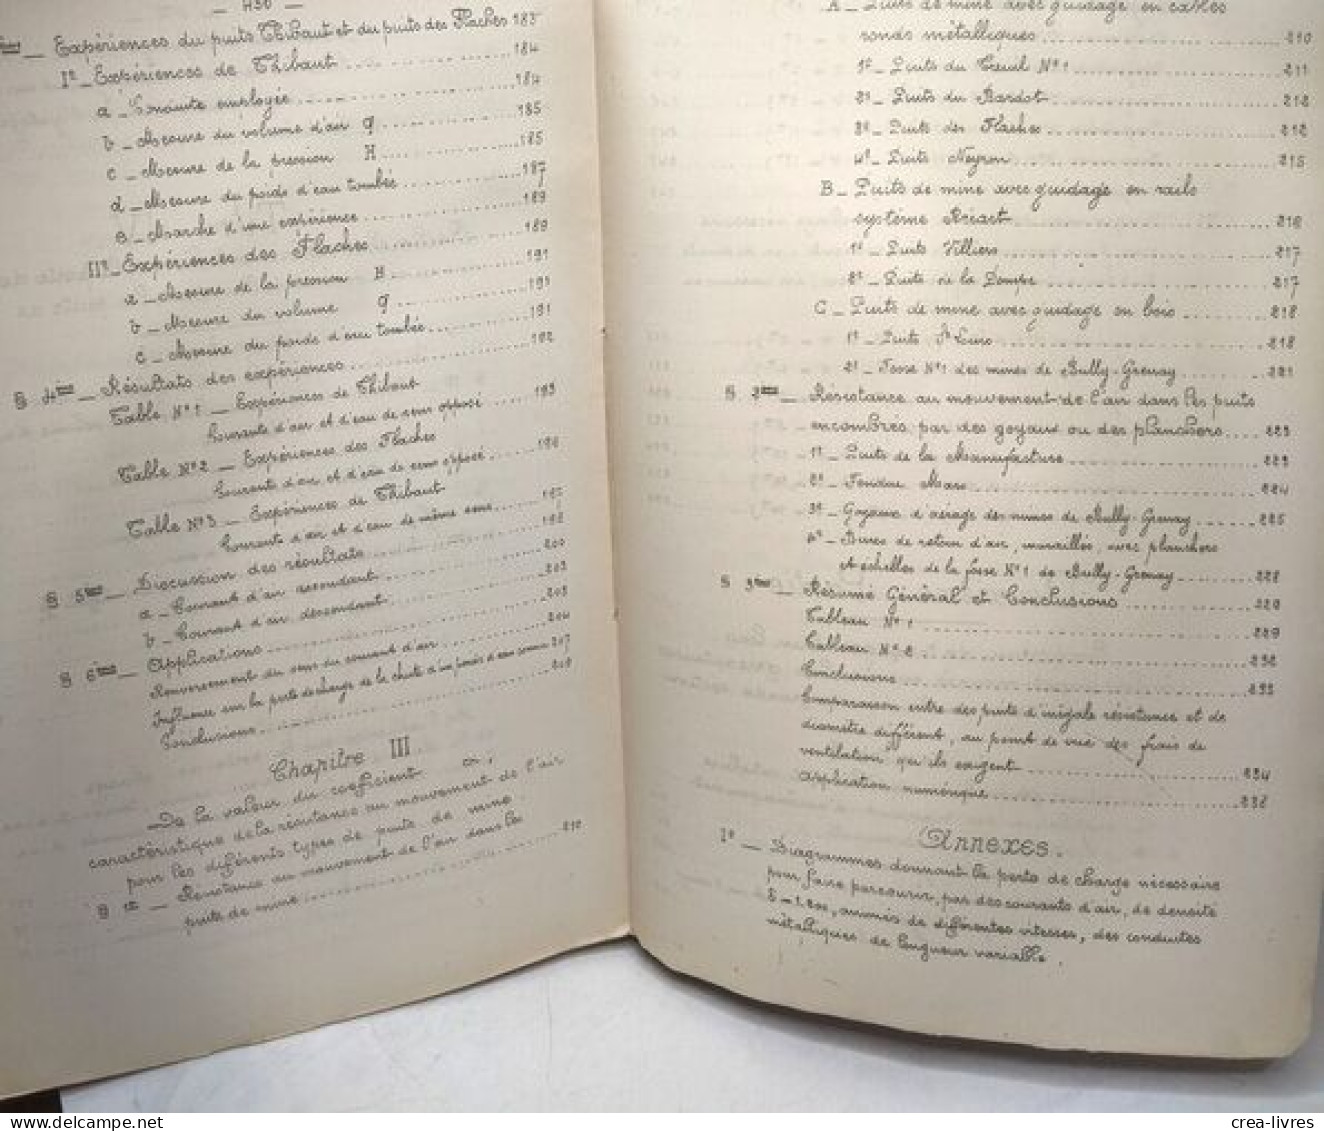 — 430 —
— Expériences du puits Thibaut et du puits des Flaches 183
I° — Expériences de Thibaut ... 184
a — Conduite employée ... 184
b — Mesure du volume d'air q ... 185
c — Mesure de la pression H ... 185
d — Mesure du poids d'eau tombée ... 187
e — Marche d'une expérience ... 189
II° — Expériences des Flaches ... 189
a — Mesure de la pression H ... 191
b — Mesure du volume q ... 191
c — Mesure du poids d'eau tombée ... 191
§ 4ème — Résultats des expériences ... 192
Table N°1 — Expériences de Thibaut
Courants d'air et d'eau de sens opposé ... 193
Table N°2 — Expériences des Flaches
Courants d'air et d'eau de sens opposé ...
Table N°3 — Expériences de Thibaut
Courants d'air et d'eau de même sens ...
§ 5ème — Discussion des résultats ...
a — Courant d'air ascendant ... 200
b — Courant d'air descendant ... 203
§ 6ème — Applications ... 203
Renversement du sens du courant d'air ... 204
Influence sur la perte de charge de la chute d'un poids d'eau connu 207
Conclusions ... 208
Chapitre III
De la valeur du coefficient
caractéristique de la résistance au mouvement de l'air
pour les différents types de puits de mine.
§ 1er — Résistance au mouvement de l'air dans les
puits de mine ... 210
A — Puits de mine avec guidage en cables
ronds métalliques ... 210
1° — Puits du Treuil N°1 ... 211
2° — Puits du Bardot ... 212
3° — Puits des Flaches ... 212
4° — Puits Neyron ... 215
B — Puits de mine avec guidage en rails
système Briart ... 216
1° — Puits Villiers ... 217
2° — Puits de la Pompe ... 217
C — Puits de mine avec guidage en bois ... 218
1° — Puits St Louis ... 218
2° — Fosse N°1 des mines de Bully-Grenay ... 221
§ 2ème — Résistance au mouvement de l'air dans les puits
encombrés par des goyaux ou des planchers ... 223
1° — Puits de la Manufacture ... 223
2° — Fendue Mars ... 224
3° — Goyaux d'aérage des mines de Bully-Grenay ... 225
4° — Bures de retour d'air, muraillés, avec planchers
et échelles de la fosse N°1 de Bully-Grenay ... 228
§ 3ème — Résumé Général et Conclusions ... 229
Tableau N°1 ... 229
Tableau N°2 ... 232
Conclusions ... 233
Comparaison entre des puits d'inégale résistance et de
diamètre différent, au point de vue des frais de
ventilation qu'ils exigent ... 234
Application numérique ...
Annexes.
I° — Diagrammes donnant la perte de charge nécessaire
pour faire parcourir, par des courants d'air, de densité
δ = 1.200, animés de différentes vitesses, des conduites
métalliques de longueur variable.
crea-livres
www.delcampe.net
crea-livres.com